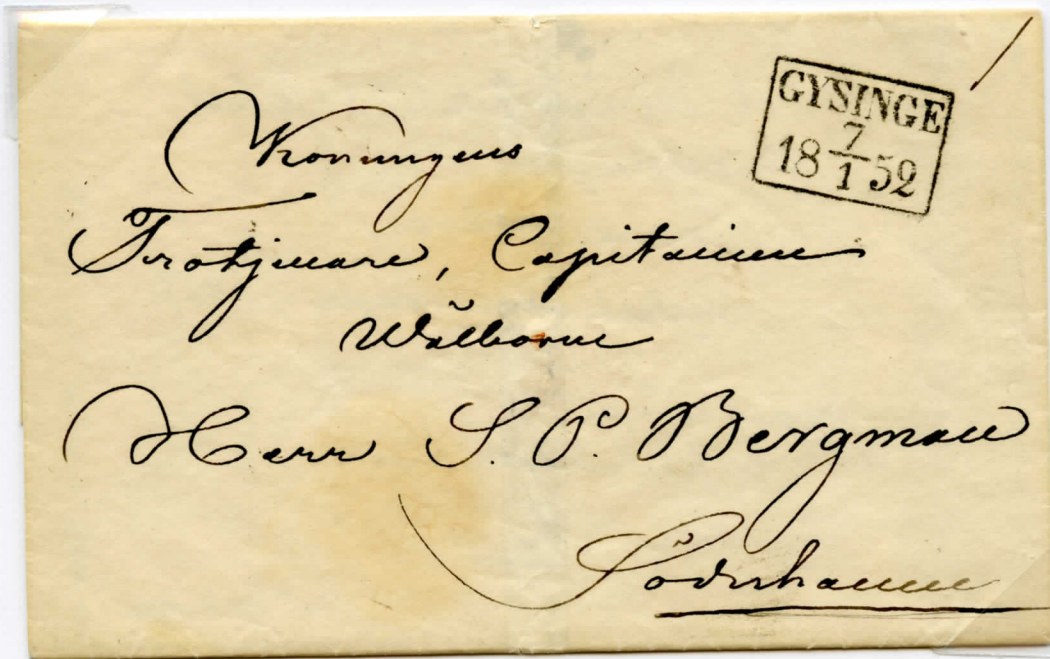 GYSINGE
7
18 — 52
1
Konungens
Trotjenare, Capitainen
Wälborne
Herr S. P. Bergman
Söderhamn